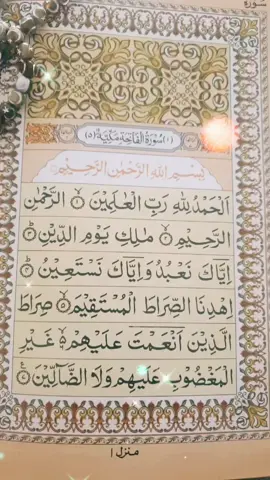 سورة
(١) سُوْرَةُ الْفَاتِحَةِ مَكِّيَّةٌ (٥)
بِسْمِ اللّٰهِ الرَّحْمٰنِ الرَّحِيْمِ
اَلْحَمْدُ لِلّٰهِ رَبِّ الْعٰلَمِيْنَ ۙ﴿۱﴾ الرَّحْمٰنِ
الرَّحِيْمِ ۙ﴿۲﴾ مٰلِكِ يَوْمِ الدِّيْنِ ؕ﴿۳﴾
اِيَّاكَ نَعْبُدُ وَاِيَّاكَ نَسْتَعِيْنُ ؕ﴿۴﴾
اِهْدِنَا الصِّرَاطَ الْمُسْتَقِيْمَ ۙ﴿۵﴾ صِرَاطَ
الَّذِيْنَ اَنْعَمْتَ عَلَيْهِمْ ۙ۬﴿۶﴾ غَيْرِ
الْمَغْضُوْبِ عَلَيْهِمْ وَلَا الضَّآلِّيْنَ ﴿۷﴾
منزل ١